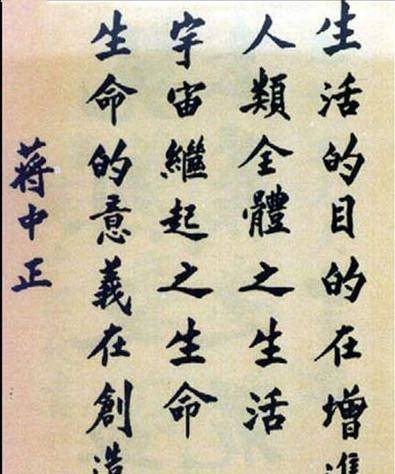 生活的目的在增進
人類全體之生活
生命的意義在創造
宇宙繼起之生命
蔣中正